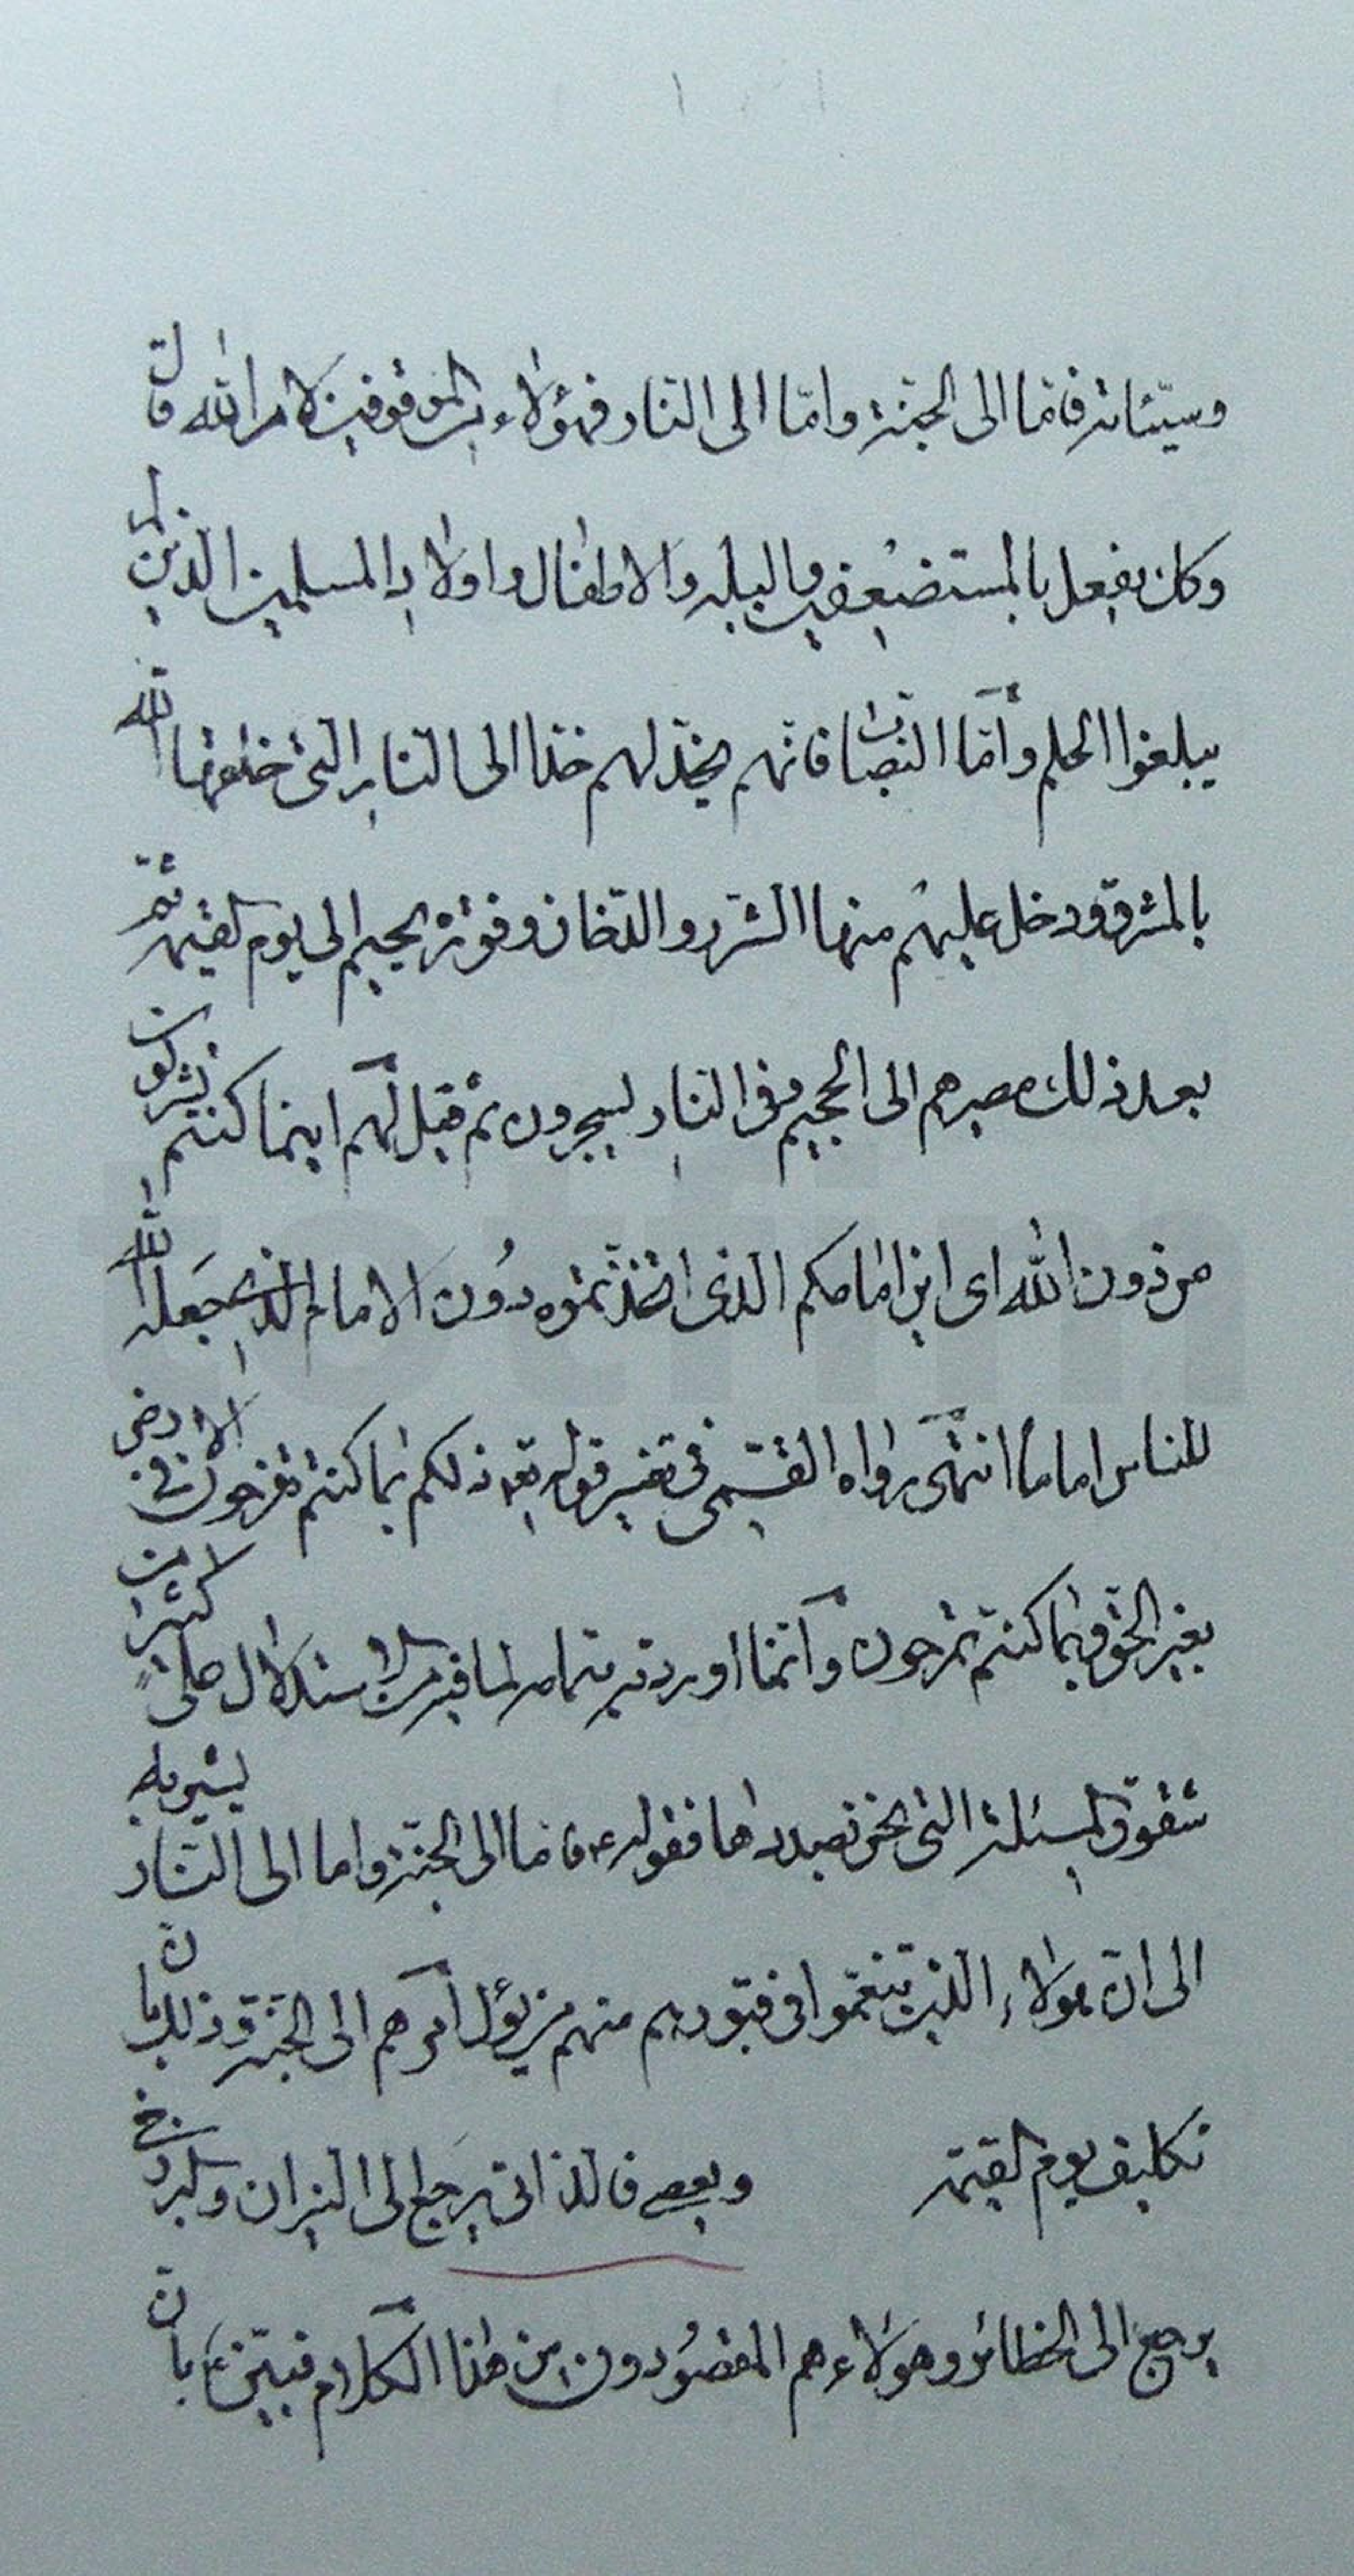 وسيّئاته فامّا الى الجنّة وامّا الى النار فهؤلاء من الموقوفين لامر الله قال
وكك يفعل بالمستضعفين والبله والاطفال واولاد المسلمين الذين لم
يبلغوا الحلم وامّا النصّاب فانّهم يخدّ لهم خدّا الى النار التى خلقها الله
بالمشرق ودخل عليهم منها الشرر والدّخان وفورة الجحيم الى يوم القيمة ثمّ
بعد ذلك مصيرهم الى الجحيم وفى النار يسجرون ثم قيل لهم اينما كنتم تشركون
من دون الله اى اين امامكم الذى اتخذتموه دون الامام الذى جعله الله
للناس اماما انتهى رواه القمى فى تفسير قوله تعه ذلكم بما كنتم تفرحون فى الارض
بغير الحق وبما كنتم تمرحون وانّما اوردته بتمامه لما فيه من الاستدلال على كثير من
شقوق المسئلة التى نحن بصددها فقوله ع فاما الى الجنة واما الى النار يشير به
الى انّ هؤلاء الذين تنعّموا فى قبورهم منهم من يؤل امرهم الى الجنّة وذلك بانّ
تكليف يوم القيمة وبعصى فالذاتى يرجع الى النيران والبرزخى
يرجع الى الحظائر وهؤلاء هم المقصودون من هذا الكلام فبيّن ع بانّ